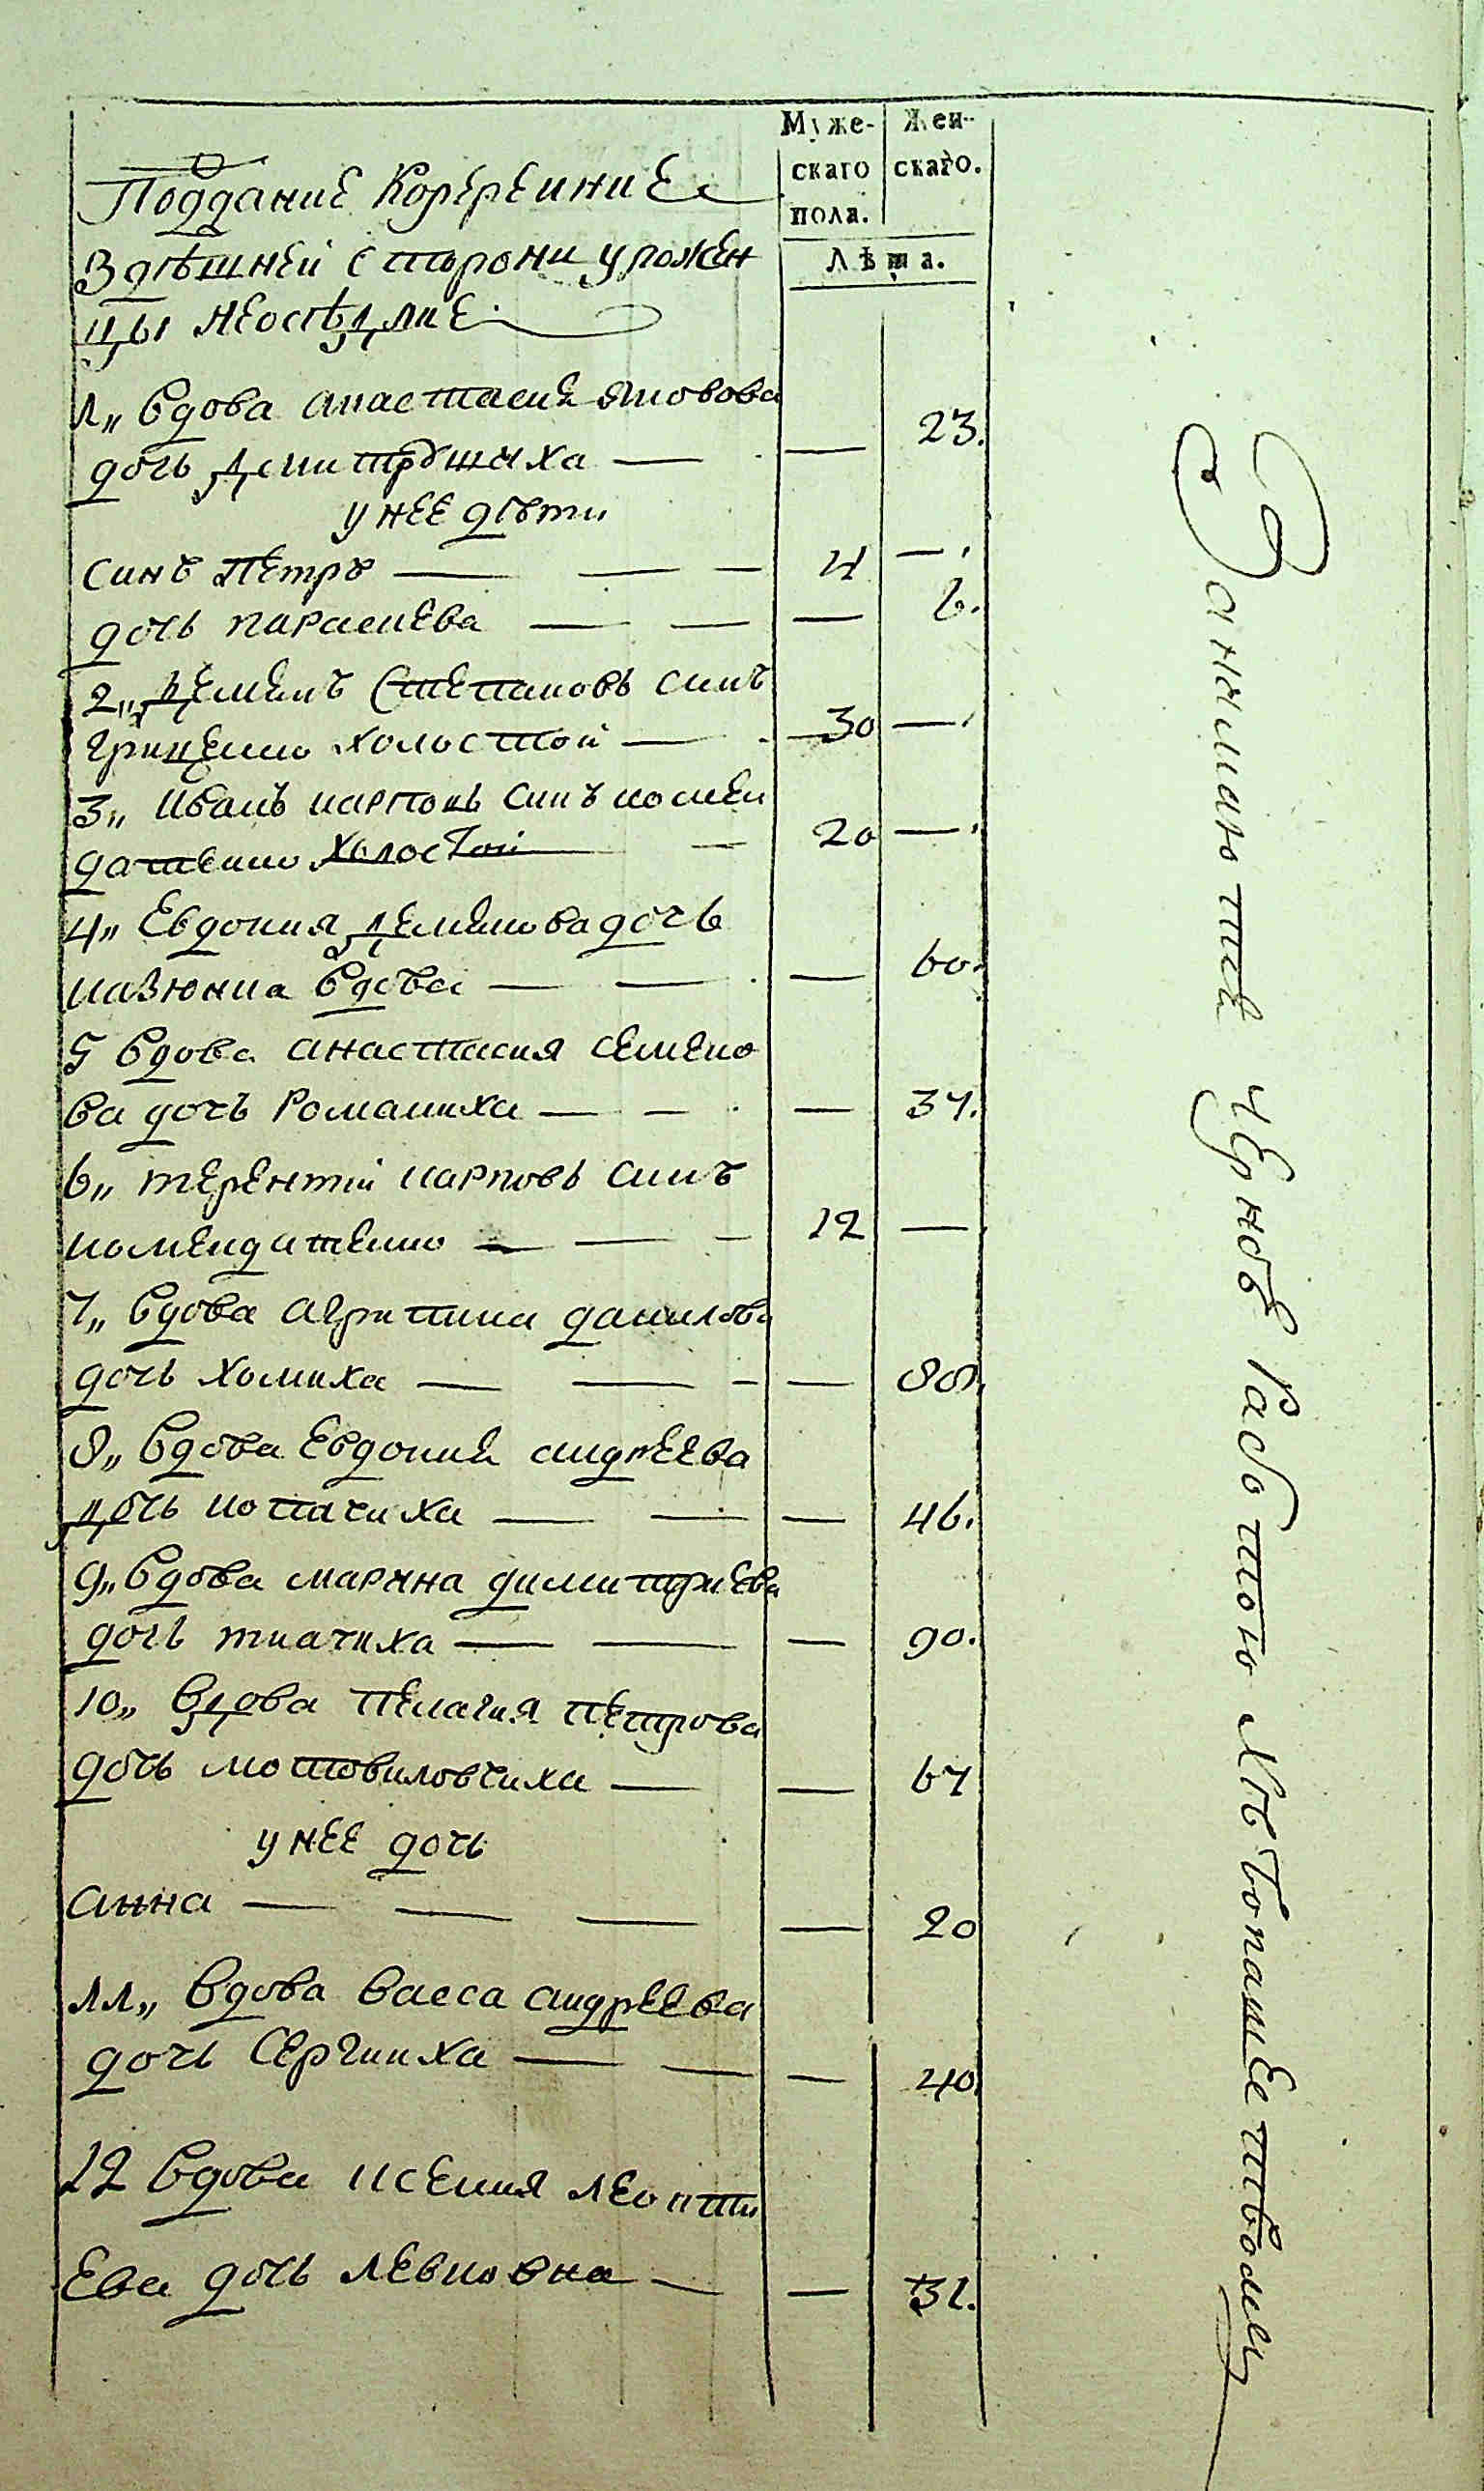 Муже-
скаго
пола.
Жен-
скаго.
Лѣта.
Поддание
Здѣшней Сторони урожен
цы неосѣдлие
1,, Вдова анастасия
дочь
у нее дѣти
синъ Петръ — — — 4 —
дочь параскева — — — 6.
2,, Демянъ Степановъ синъ
гриценко холостой — 30 —
3,, Иванъ карповъ синъ комен
датенко Холостой — 20 —
4,, Евдокия демянова дочь
вдова — — — 60.
5 Вдова анастасия семено
ва дочь Романиха — — — 37.
6,, терентій карповъ синъ
комендатенко — — — 12 —
7,, Вдова агрипина данилова
дочь хомиха — — — — 80.
8,, Вдова Евдокия андреева
дочь — — — 46.
9,, Вдова марина димитриева
дочь ткачиха — — — 90.
10,, Вдова пелагия петрова
дочь мотовиловчиха — — 67
у нее дочь
анна — — — — 20
11,, Вдова Васса андреева
дочь Сергииха — — — 40.
12 Вдова ксения леонти
ева дочь левковна — — 31.
Занимаютсе черною работою Хлѣбопашественною